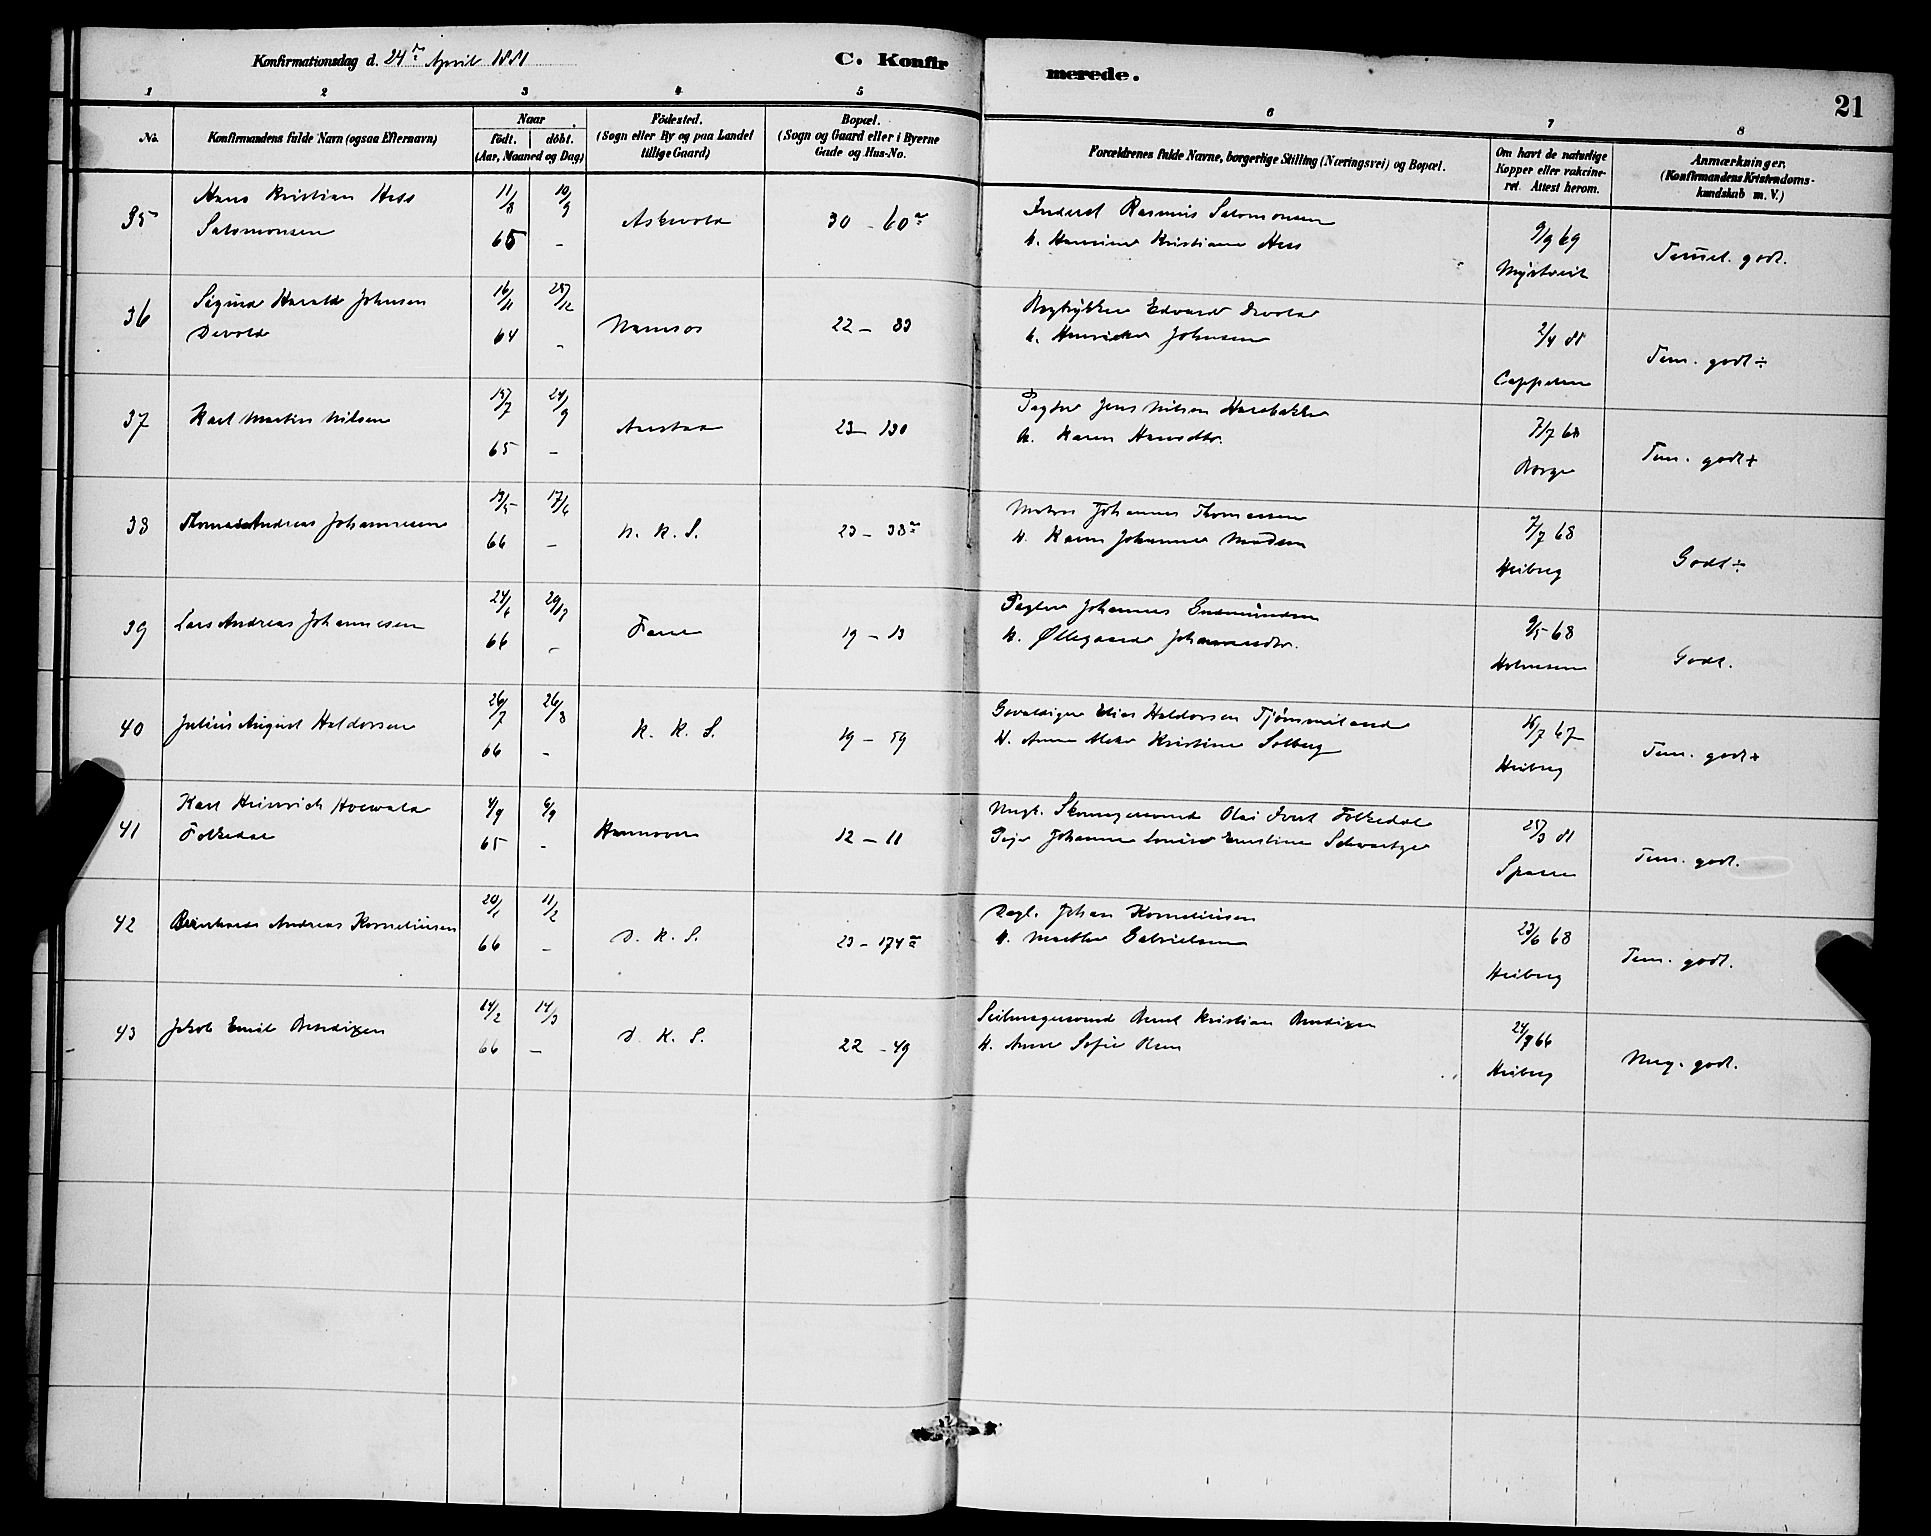 Konfirmationsdag d. 24de April 1881
C. Konfirmerede.
21
1 2 3 4 5 6 7 8
No.
Konfirmandens fulde Navn (ogsaa Efternavn)
Naar
født. døbt.
(Aar, Maaned og Dag)
Fødested.
(Sogn eller By og paa Landet
tillige Gaard)
Bopæl.
(Sogn og Gaard eller i Byerne
Gade og Hus-No.
Forældrenes fulde Navne, borgerlige Stilling (Næringsvei) og Bopæl.
Om havt de naturlige
Kopper eller vakcine-
ret. Attest herom.
Anmærkninger.
(Konfirmandens Kristendoms-
kundskab m. V.)
35 Hans Kristian Hess 11/8 10/9
Salomonsen 65 – Askevold 30 – 60a
Rasmus Salomonsen
H. Kristiane Hess
9/9 69
Temmel. godt.
36 Sigurd Harald Johnsen 16/11 25/12
Devold 64 – Namsos 22 – 83
Edvard Devold
H. Johnsen
2/4 81
Cappelen
Tem. godt ÷
37 Karl Martin Nilsen 15/7 24/9
65 – 23 – 130
Jens Nilsen
H. Karen Hansdtr.
7/7 68
Borge
Tem. godt +
38 Thomas Andreas Johannesen 17/6
66 – N. K. S. 23 – 38a
Matros Johannes Thomassen
H. Karen Johanne Madsen
7/7 68
Heiberg
Godt ÷
39 Lars Andreas Johannesen 24/6
66 – 19 – 13
Johannes Gudmundsen
H. Øllegaard Johannesdtr.
9/5 68
Godt.
40 Julius August Haldorsen 26/7 26/8
66 – K. K. S. 19 – 59
Elias Haldorsen
H. Anne Kristine Solberg
/7 67
Heiberg
Tem. godt +
41 Karl Heinrich 4/9 6/9
Folkedal 65 – Hannover 12 – 11
Ungk. Folkedal
Pige Johanne Louise Ernstine
25/3 81
Tem. godt.
42 Andreas Korneliusen 20/1 11/2
66 – D. K. S. 23 – 174a
Dagl. Johan Korneliusen
H. Marthe Gabrielsen
23/6 68
Heiberg
Tem. godt.
43 Jakob Emil Bendixen 14/2 14/3
66 – D. K. S. 22 – 49
Seilmagersvend Bernt Kristian Bendixen
H. Anne Sofie Olsen
24/9 66
Heiberg
Meg. godt.